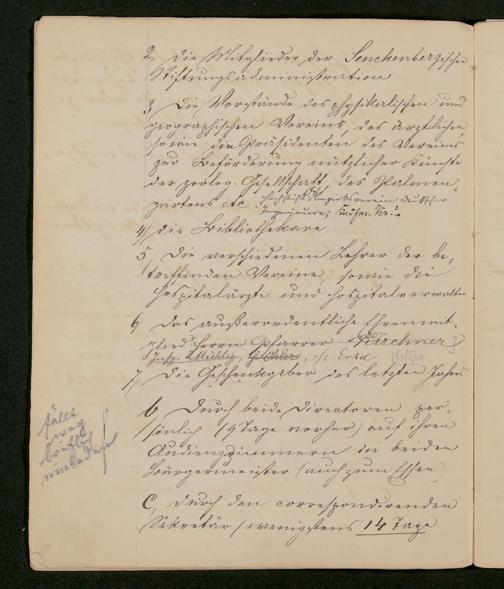 2, Die Mitglieder der Senckenbergischen
Stiftungsadministration
3, Die Vorstände des physikalischen und
geographischen Vereins, des ärztlichen
sowie den Präsidenten des Vereins
zur Beförderung nützlicher Künste
der zoolog. Gesellschaft, des Palmen-
gartens etc.
Ingenieure, Kaufm. Ver.
4, Die Bibliothekare
5, Die verschiedenen Lehrer der be-
treffenden Vereine, sowie die
Hospitalärzte und Hospitalverwalter
6, Das außerordentliche Ehrenmit-
glied Herrn Pfarrer Kirchner
7, Die Geschenkgeber des letzten Jahres
b, Durch beide Directoren per-
sönlich (19 Tage vorher) auf ihren
Audienzzimmern die beiden
Bürgermeister (auch zum Essen)
fällt
weg
C, Durch den correspondirenden
Sekretär (wenigstens 14 Tage